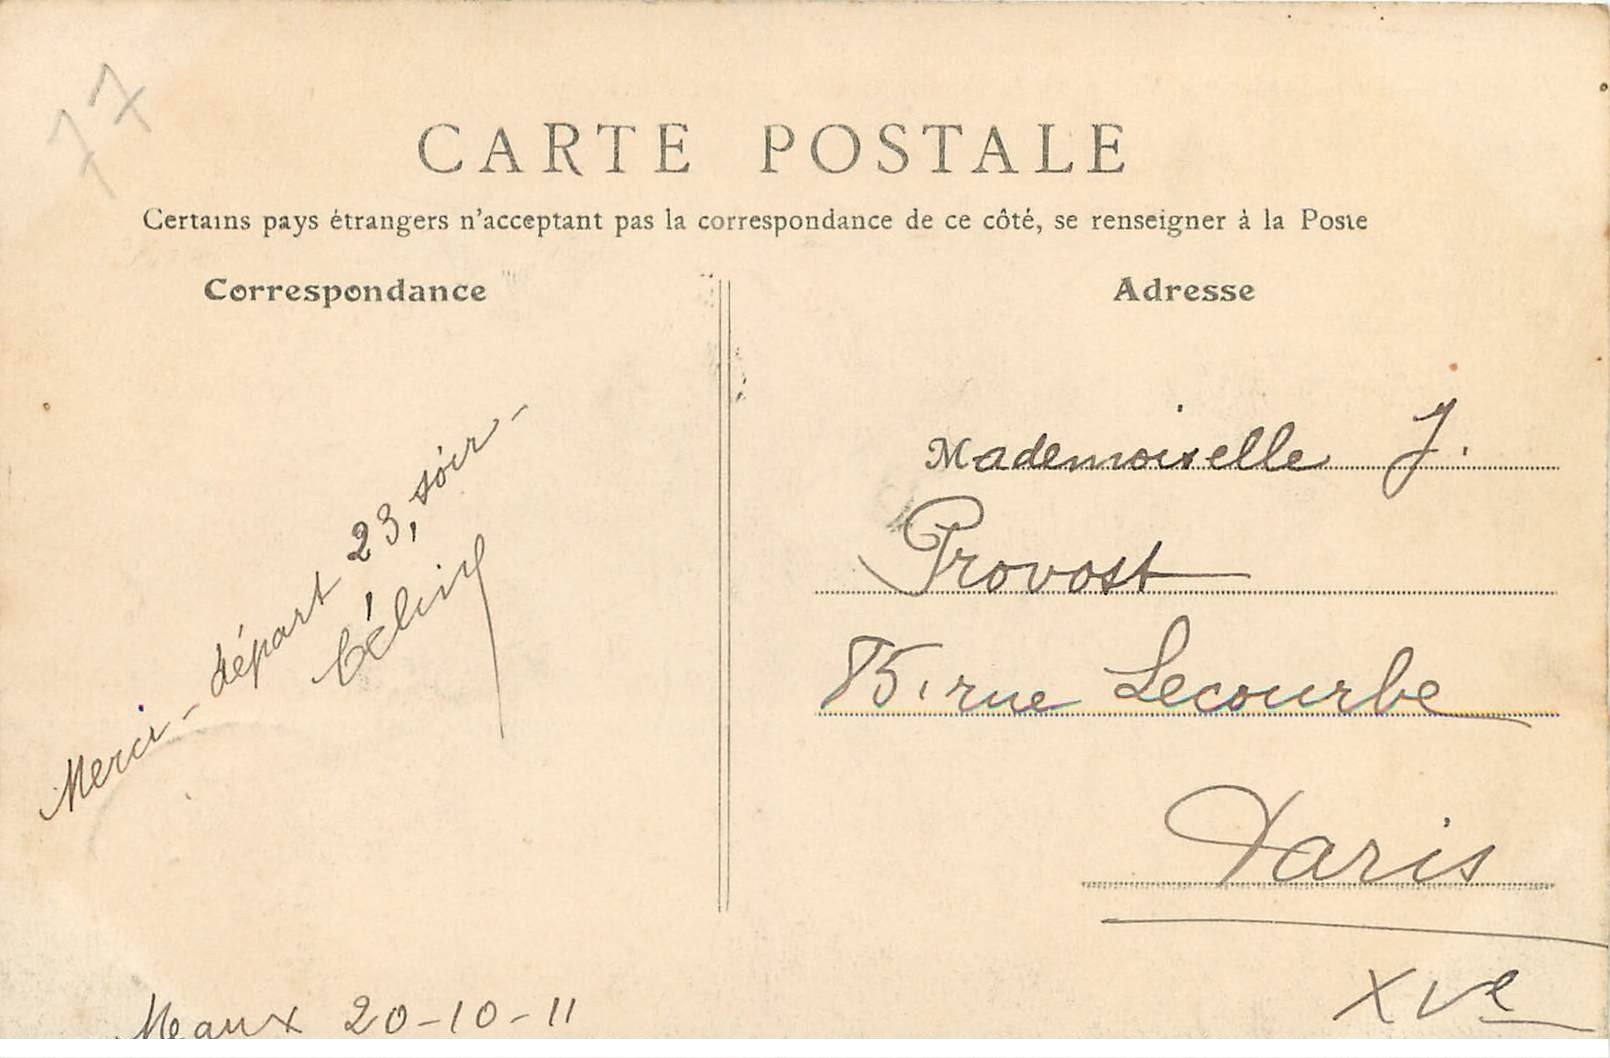 77
CARTE POSTALE
Certains pays étrangers n'acceptant pas la correspondance de ce côté, se renseigner à la Poste
Correspondance
Merci - départ 23, soir -
Meaux 20-10-11
Adresse
Mademoiselle J.
Provost
85, rue Lecourbe
Paris
XVe